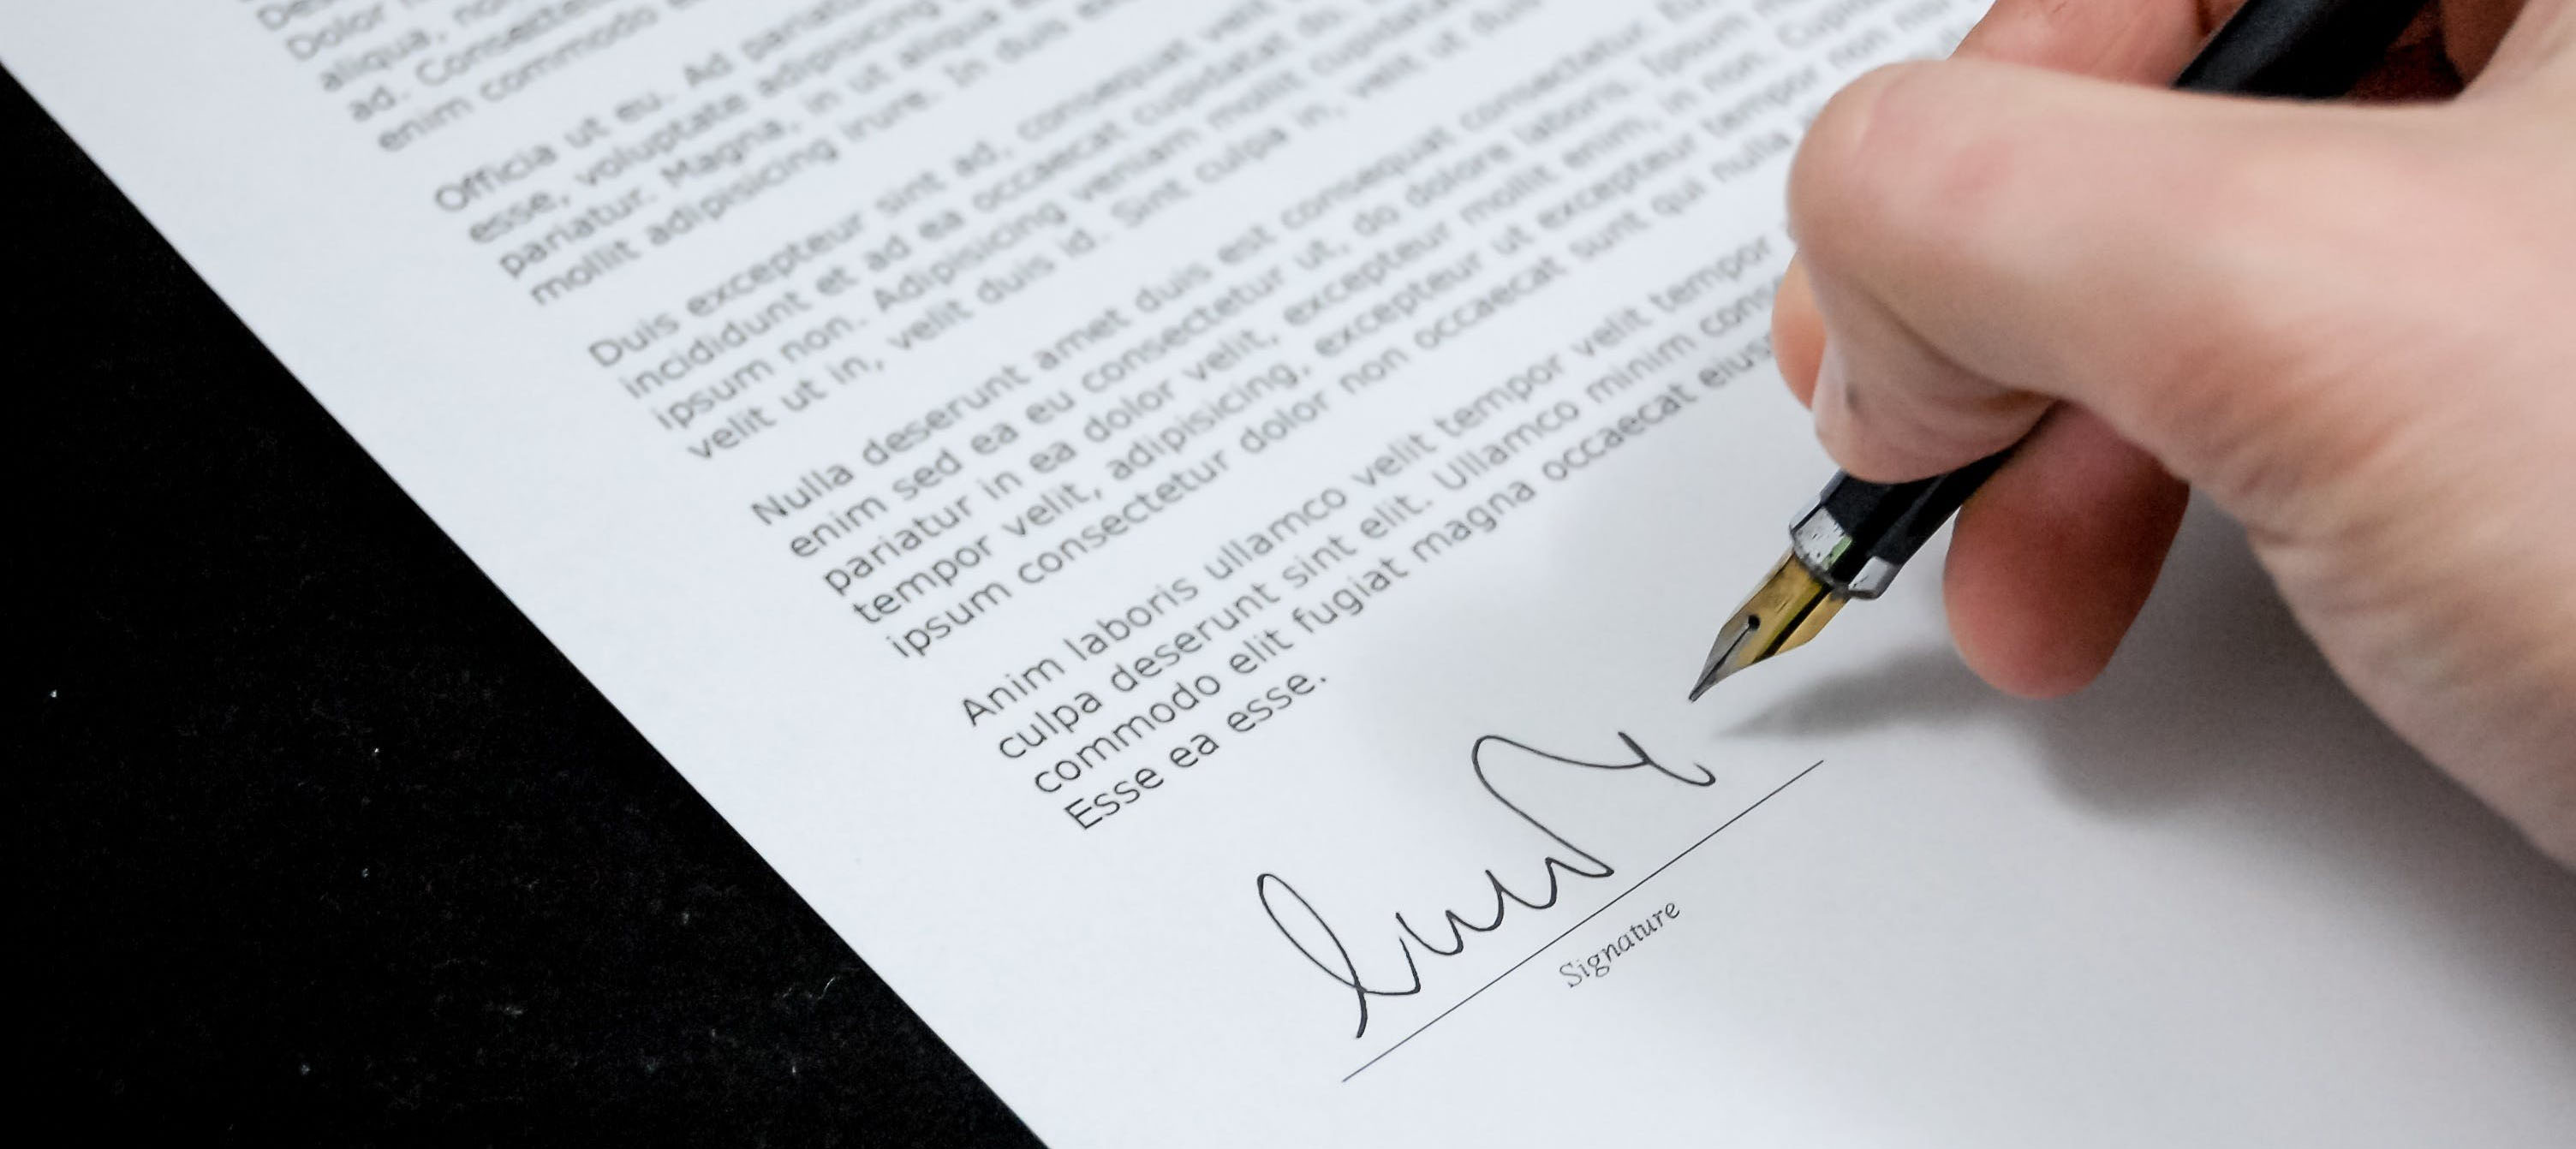 Dolor
aliqua, non
ad. Consectetur
enim commodo
Officia ut eu. Ad pariatur
esse, voluptate adipisicing
pariatur. Magna, in ut aliqua
mollit adipisicing irure. In duis
Duis excepteur sint ad, consequat velit
incididunt et ad ea occaecat cupidatat do.
ipsum non. Adipisicing veniam mollit cupidatat
velit ut in, velit duis id. Sint culpa in, velit ut duis
Nulla deserunt amet duis est consequat consectetur
enim sed ea eu consectetur ut, do dolore laboris. Ipsum
pariatur in ea dolor velit, excepteur mollit enim, in non. Cupidatat
tempor velit, adipisicing, excepteur ut excepteur tempor non
ipsum consectetur dolor non occaecat sunt qui nulla
Anim laboris ullamco velit tempor velit tempor
culpa deserunt sint elit. Ullamco minim cons
commodo elit fugiat magna occaecat eius
Esse ea esse.
Signature